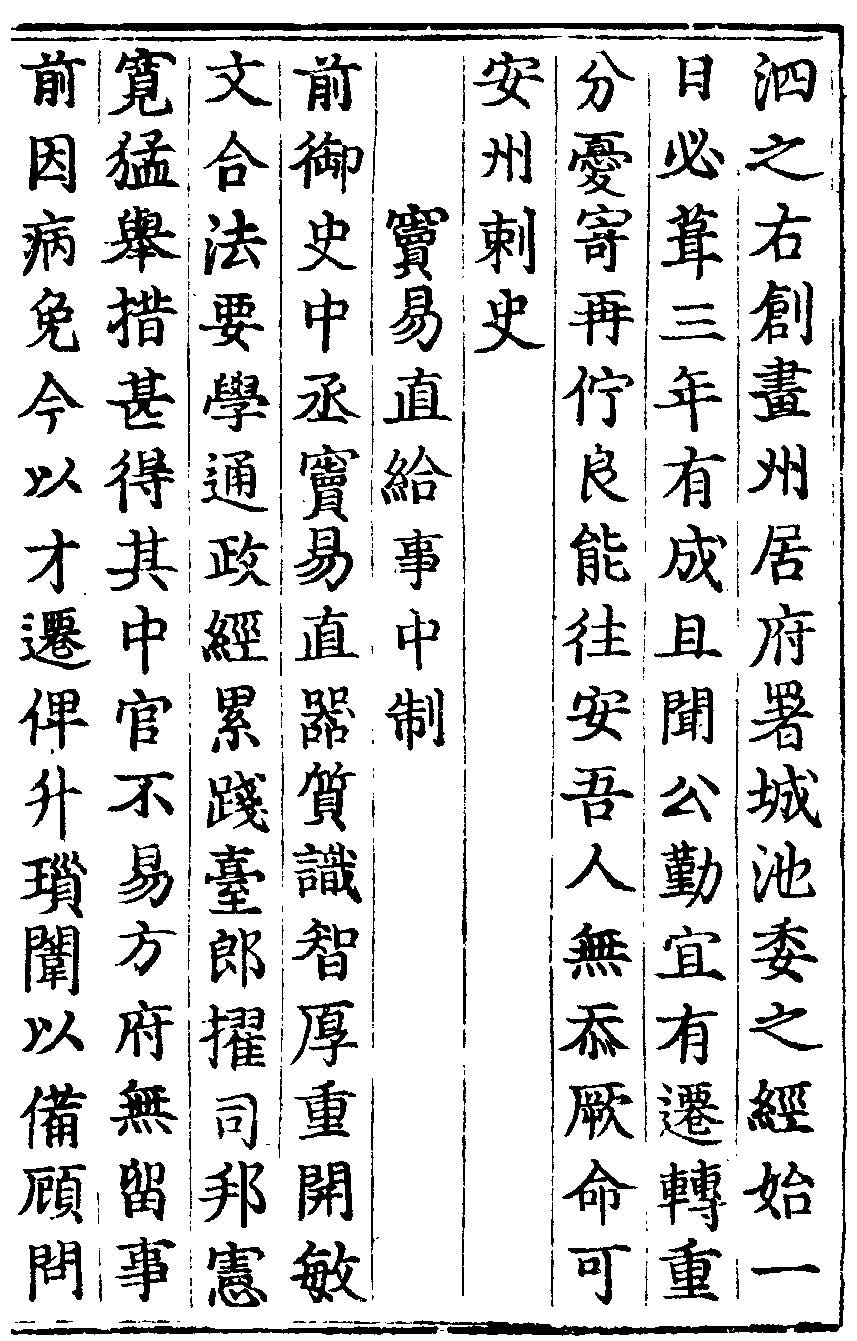 泗之右創畫州居府署城池委之經始一
日必葺三年有成且聞公勤宜有遷轉重
分憂寄再佇良能往安吾人無忝厥命可
安州刺史
竇易直給事中制
前御史中丞竇易直器質識智厚重開敏
文合法要學通政經累踐臺郎擢司邦憲
寬猛舉措甚得其中官不易方府無留事
前因病免今以才遷俾升瑣闈以備顧問